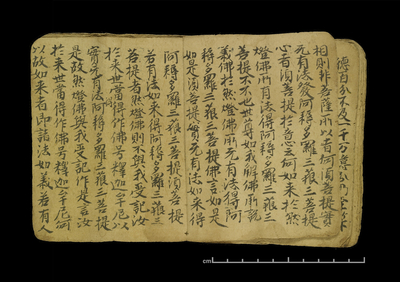 德百分不及一千万億分乃至
相則非菩薩所以者何須菩提實
无有法發阿耨多羅三藐三菩提
心者須菩提於意云何如来於然
燈佛所有法得阿耨多羅三藐三
菩提不不也世尊如我解佛所說
義佛於然燈佛所无有法得阿
耨多羅三藐三菩提佛言如是
如是須菩提實无有法如来得
阿耨多羅三藐三菩提須菩提
若有法如来得阿耨多羅三藐三
菩提者然燈佛則不與我受記汝
於来世當得作佛号釋迦牟尼以
實无有法得阿耨多羅三藐三菩提
是故然燈佛與我受記作是言汝
於来世當得作佛号釋迦牟尼何
以故如来者即諸法如義若有人
cm